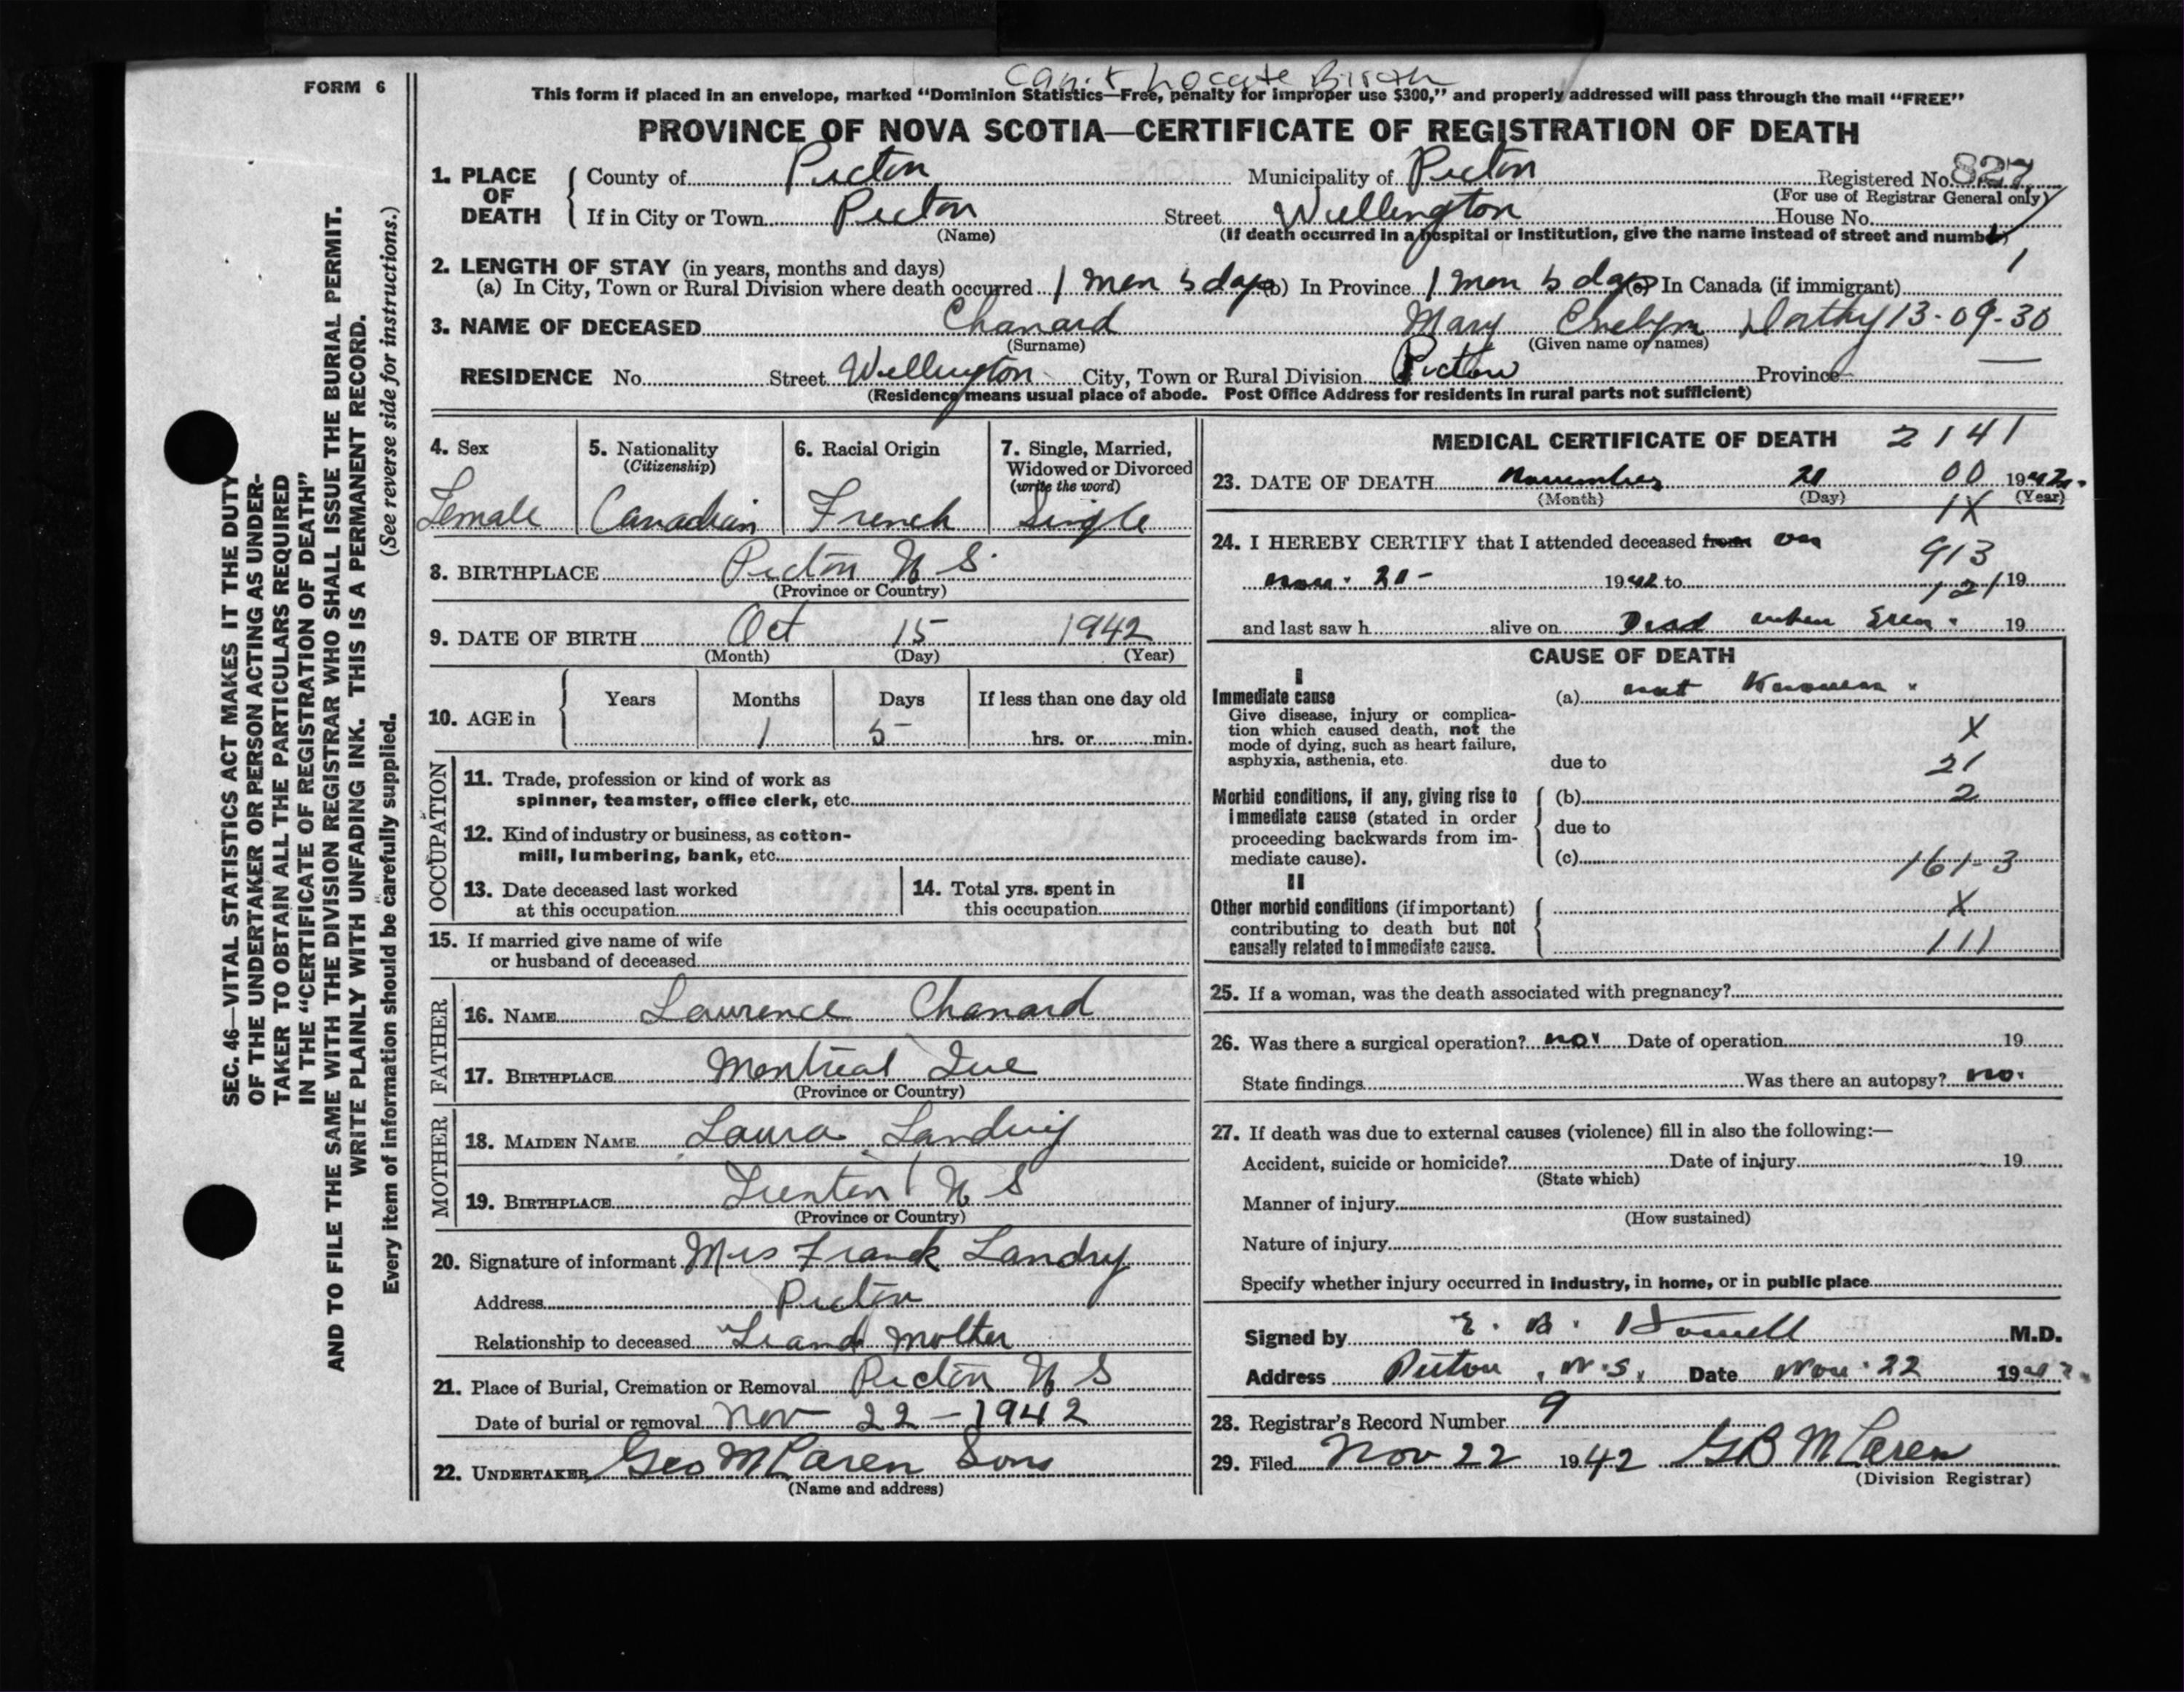 Can't Locate Birth
FORM 6
This form if placed in an envelope, marked "Dominion Statistics—Free, penalty for improper use $300," and properly addressed will pass through the mail "FREE"
PROVINCE OF NOVA SCOTIA—CERTIFICATE OF REGISTRATION OF DEATH
1. PLACE OF DEATH { County of Pictou Municipality of Pictou Registered No. 827
(For use of Registrar General only)
If in City or Town Pictou Street Wellington House No.
(Name) (If death occurred in a hospital or institution, give the name instead of street and number)
1
2. LENGTH OF STAY (in years, months and days)
(a) In City, Town or Rural Division where death occurred 1 mon 5 days (b) In Province 1 mon 5 dys (c) In Canada (if immigrant)
3. NAME OF DECEASED Chanard Mary Evelyn Dorthy 13-09-30
(Surname) (Given name or names)
RESIDENCE No. Street Wellington City, Town or Rural Division Pictou Province —
(Residence means usual place of abode. Post Office Address for residents in rural parts not sufficient)
SEC. 46—VITAL STATISTICS ACT MAKES IT THE DUTY
OF THE UNDERTAKER OR PERSON ACTING AS UNDER-
TAKER TO OBTAIN ALL THE PARTICULARS REQUIRED
IN THE "CERTIFICATE OF REGISTRATION OF DEATH"
AND TO FILE THE SAME WITH THE DIVISION REGISTRAR WHO SHALL ISSUE THE BURIAL PERMIT.
WRITE PLAINLY WITH UNFADING INK. THIS IS A PERMANENT RECORD.
Every item of information should be carefully supplied. (See reverse side for instructions.)
4. Sex 5. Nationality 6. Racial Origin 7. Single, Married,
(Citizenship) Widowed or Divorced
(write the word)
Female Canadian French Single
8. BIRTHPLACE Pictou N S
(Province or Country)
9. DATE OF BIRTH Oct 15 1942
(Month) (Day) (Year)
10. AGE in { Years Months Days If less than one day old
1 5 hrs. or min.
OCCUPATION
11. Trade, profession or kind of work as
spinner, teamster, office clerk, etc.
12. Kind of industry or business, as cotton-
mill, lumbering, bank, etc.
13. Date deceased last worked 14. Total yrs. spent in
at this occupation this occupation
15. If married give name of wife
or husband of deceased
FATHER
16. NAME Lawrence Chanard
17. BIRTHPLACE Montreal Que
(Province or Country)
MOTHER
18. MAIDEN NAME Laura Landry
19. BIRTHPLACE Trenton N S
(Province or Country)
20. Signature of informant Mrs Frank Landry
Address Pictou
Relationship to deceased Grand Mother
21. Place of Burial, Cremation or Removal Pictou N S
Date of burial or removal Nov 22-1942
22. UNDERTAKER Geo McLaren Sons
(Name and address)
MEDICAL CERTIFICATE OF DEATH 2141
23. DATE OF DEATH November 20 00 1942
(Month) (Day) (Year)
1X
24. I HEREBY CERTIFY that I attended deceased from on
Nov. 20- 1942 to 19
913
121
and last saw h alive on Dead when seen. 19
CAUSE OF DEATH
I
Immediate cause (a) not known.
Give disease, injury or complica-
tion which caused death, not the
mode of dying, such as heart failure,
asphyxia, asthenia, etc. due to
X
21
Morbid conditions, if any, giving rise to (b) 2
immediate cause (stated in order due to
proceeding backwards from im-
mediate cause). (c) 161-3
II
Other morbid conditions (if important) X
contributing to death but not
causally related to immediate cause. 111
25. If a woman, was the death associated with pregnancy?
26. Was there a surgical operation? no. Date of operation 19
State findings Was there an autopsy? no.
27. If death was due to external causes (violence) fill in also the following:—
Accident, suicide or homicide? Date of injury 19
(State which)
Manner of injury
(How sustained)
Nature of injury
Specify whether injury occurred in industry, in home, or in public place
Signed by E. B. M.D.
Address Pictou, N.S. Date Nov. 22 1942
28. Registrar's Record Number 9
29. Filed Nov 22 1942 G B McLaren
(Division Registrar)